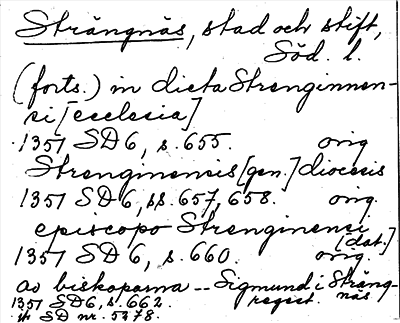 Strängnäs, stad och stift,
Söd. l.
(forts.) in dicta Strenginnen-
si [ecclesia]
1357 SD 6, s. 655. orig.
Strenginensis [gen.] diocesis
1357 SD 6, ss. 657, 658. orig.
episcopo Strenginensi [dat.]
1357 SD 6, s. 660. orig.
ao biskoparna -- Sigmund i Sträng-
näs
1357 SD 6, s. 662. regest.
SD nr. 5278.